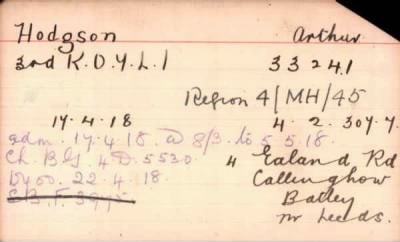 Hodgson Arthur
3rd K.O.Y.L.I 33241
Region 4/MH/45
17.4.18 4.2.307.7
adm. 17.4.18. @ 8/3. to 5.5.18.
Ch. BG 4D.5530
D400. 22.4.18. 4 Ealand Rd
Callinghow
Batley
nr Leeds.